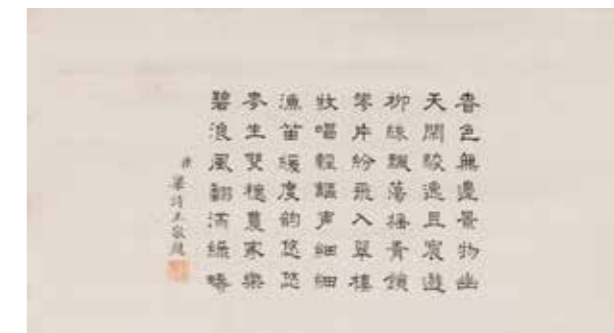 春色無邊景物幽
天閑駿逸且宸遊
柳絲飄蕩搖青鎖
片紛飛入翠樓
牧唱輕謳声細細
漁笛緩度韵悠悠
麥生雙穗農家樂
碧浪風翻滿綠疇
敬題